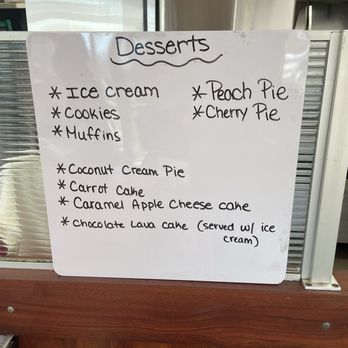 Desserts
* Ice cream
* Cookies
* Muffins
* Peach Pie
* Cherry Pie
* Coconut Cream Pie
* Carrot Cake
* Caramel Apple Cheese cake
* Chocolate Lava cake (served w/ ice
cream)